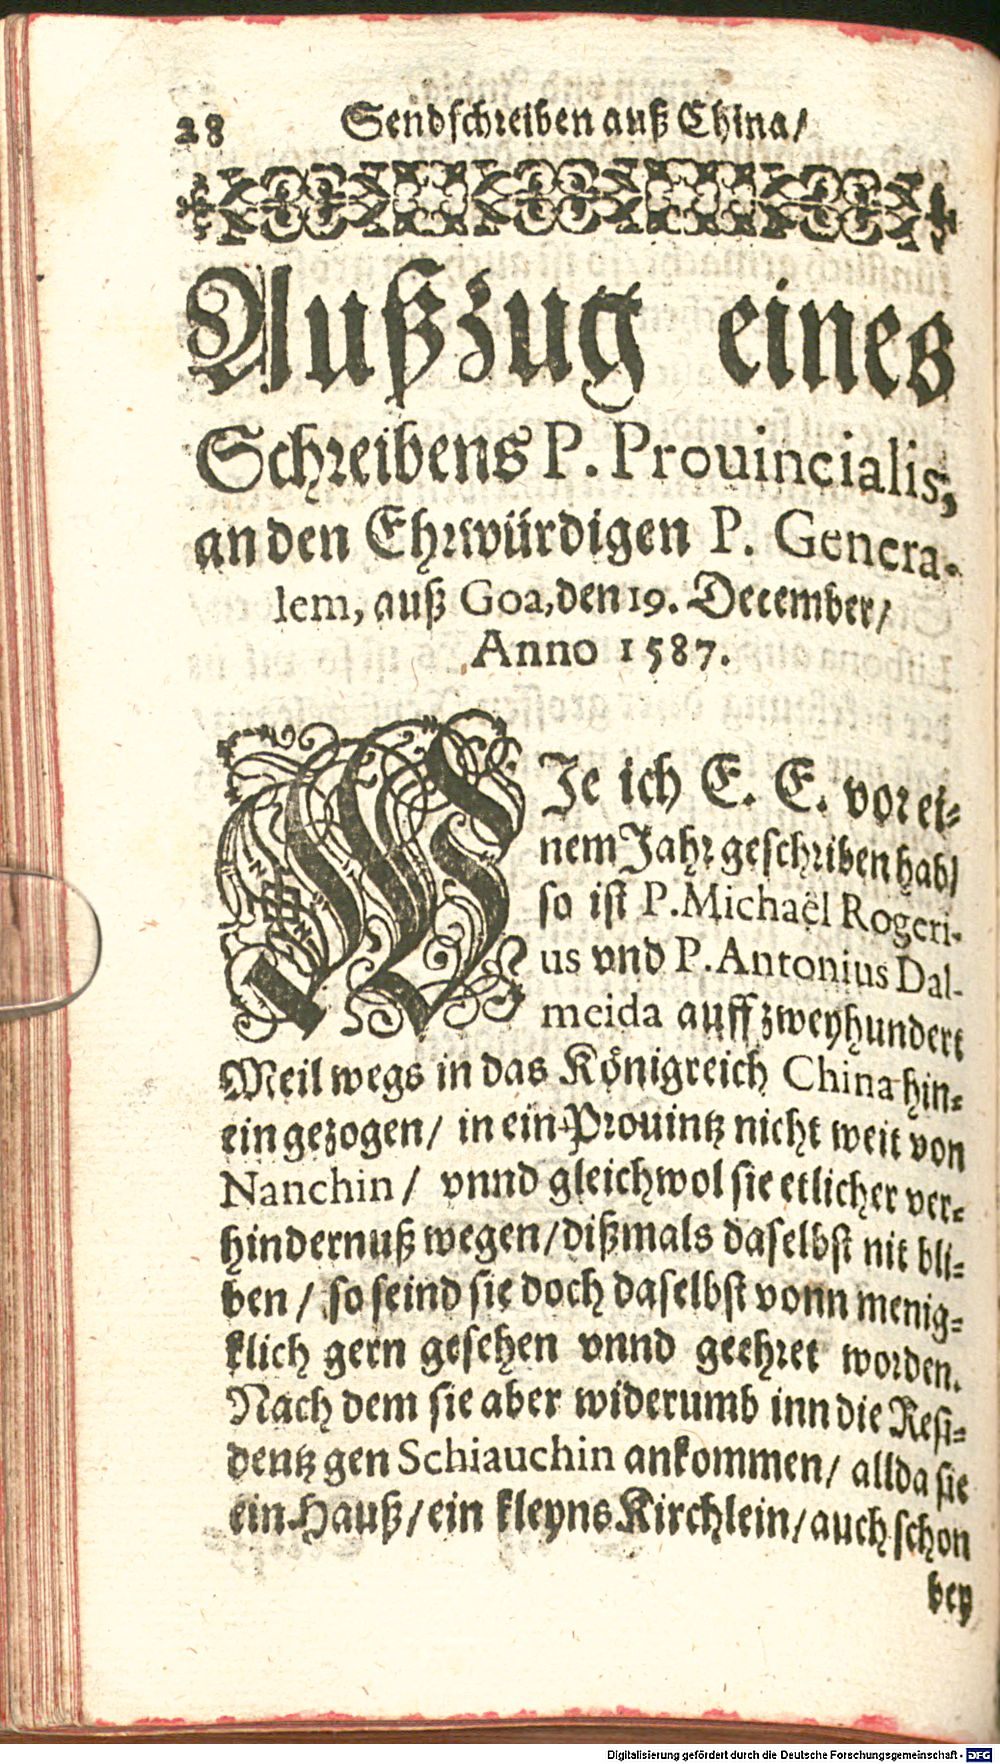 28 Sendschreiben auß China/
Außzug eines
Schreibens P. Prouincialis,
an den Ehrwürdigen P. Genera-
lem, auß Goa, den 19. December/
Anno 1587.
WJe ich E. E. vor ei-
nem Jahr geschriben hab/
so ist P. Michaël Rogeri-
us vnd P. Antonius Dal-
meida auff zweyhundert
Meil wegs in das Königreich China hin-
ein gezogen/ in ein Prouintz nicht weit von
Nanchin/ vnnd gleichwol sie etlicher ver-
hindernuß wegen/ dißmals daselbst nit bli-
ben/ so seind sie doch daselbst vonn menig-
klich gern gesehen vnnd geehret worden.
Nach dem sie aber widerumb inn die Resi-
dentz gen Schiauchin ankommen/ allda sie
ein Hauß/ ein kleyns Kirchlein/ auch schon
bey
Digitalisierung gefördert durch die Deutsche Forschungsgemeinschaft - DFG